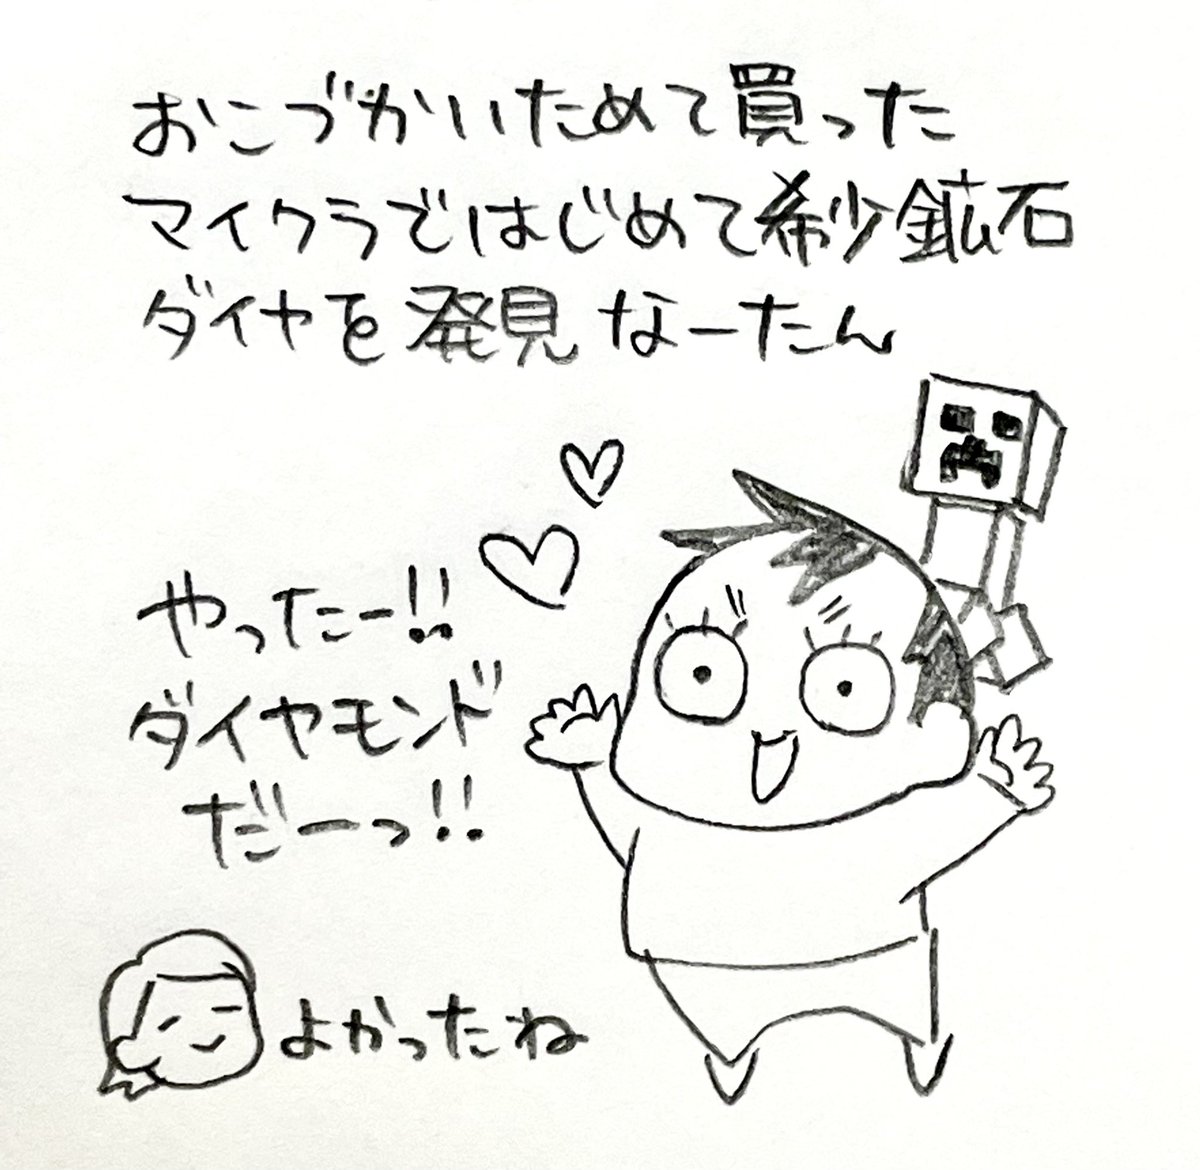 おこづかいためて買った
マイクラではじめて希少鉱石
ダイヤを発見 なーたん
やったー!!
ダイヤモンド
だーっ!!
よかったね